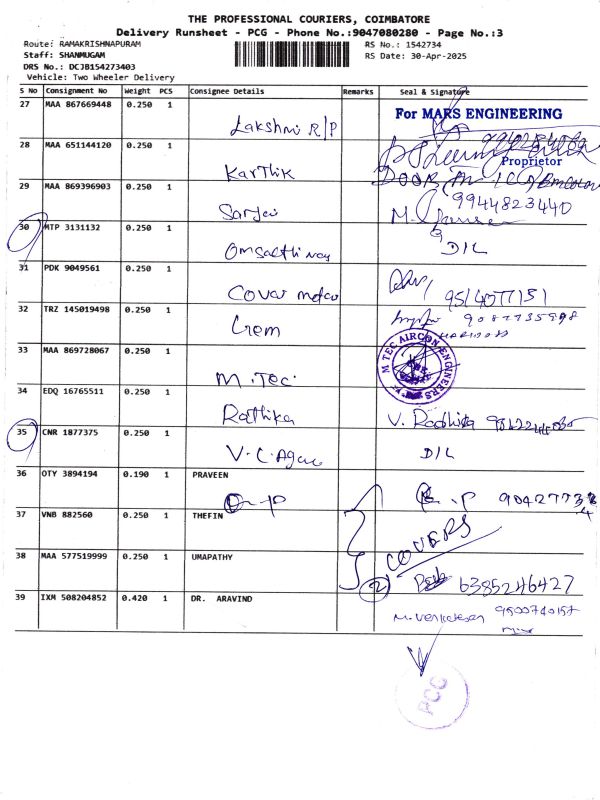 THE PROFESSIONAL COURIERS, COIMBATORE
Delivery Runsheet - PCG - Phone No.:9047080280 - Page No.:3
Route: RAMAKRISHNAPURAM
RS No.: 1542734
Staff: SHANMUGAM
RS Date: 30-Apr-2025
DRS No.: DCJB154273403
Vehicle: Two Wheeler Delivery
S No Consignment No Weight PCS Consignee Details Remarks Seal & Signature
27 MAA 867669448 0.250 1
Lakshmi R/P
For MARS ENGINEERING
Proprietor
28 MAA 651144120 0.250 1
Karthik
DOOR
29 MAA 869396903 0.250 1
9944823440
Sanjei
M.
30 MTP 3131132 0.250 1
D/L
31 PDK 9049561 0.250 1
9514077151
32 TRZ 145019498 0.250 1
9087735998
Crem
33 MAA 869728067 0.250 1
M TEC AIRCON ENGINEERS
M. Tec
34 EDQ 16765511 0.250 1
Rathika
V. Radhika
35 CNR 1877375 0.250 1
V.C. Agenc
D/L
36 OTY 3894194 0.190 1 PRAVEEN
.P
37 VNB 882560 0.250 1 THEFIN
COVERS
38 MAA 577519999 0.250 1 UMAPATHY
2
6385246427
39 IXM 508204852 0.420 1 DR. ARAVIND
M. Venkatesan
PCC